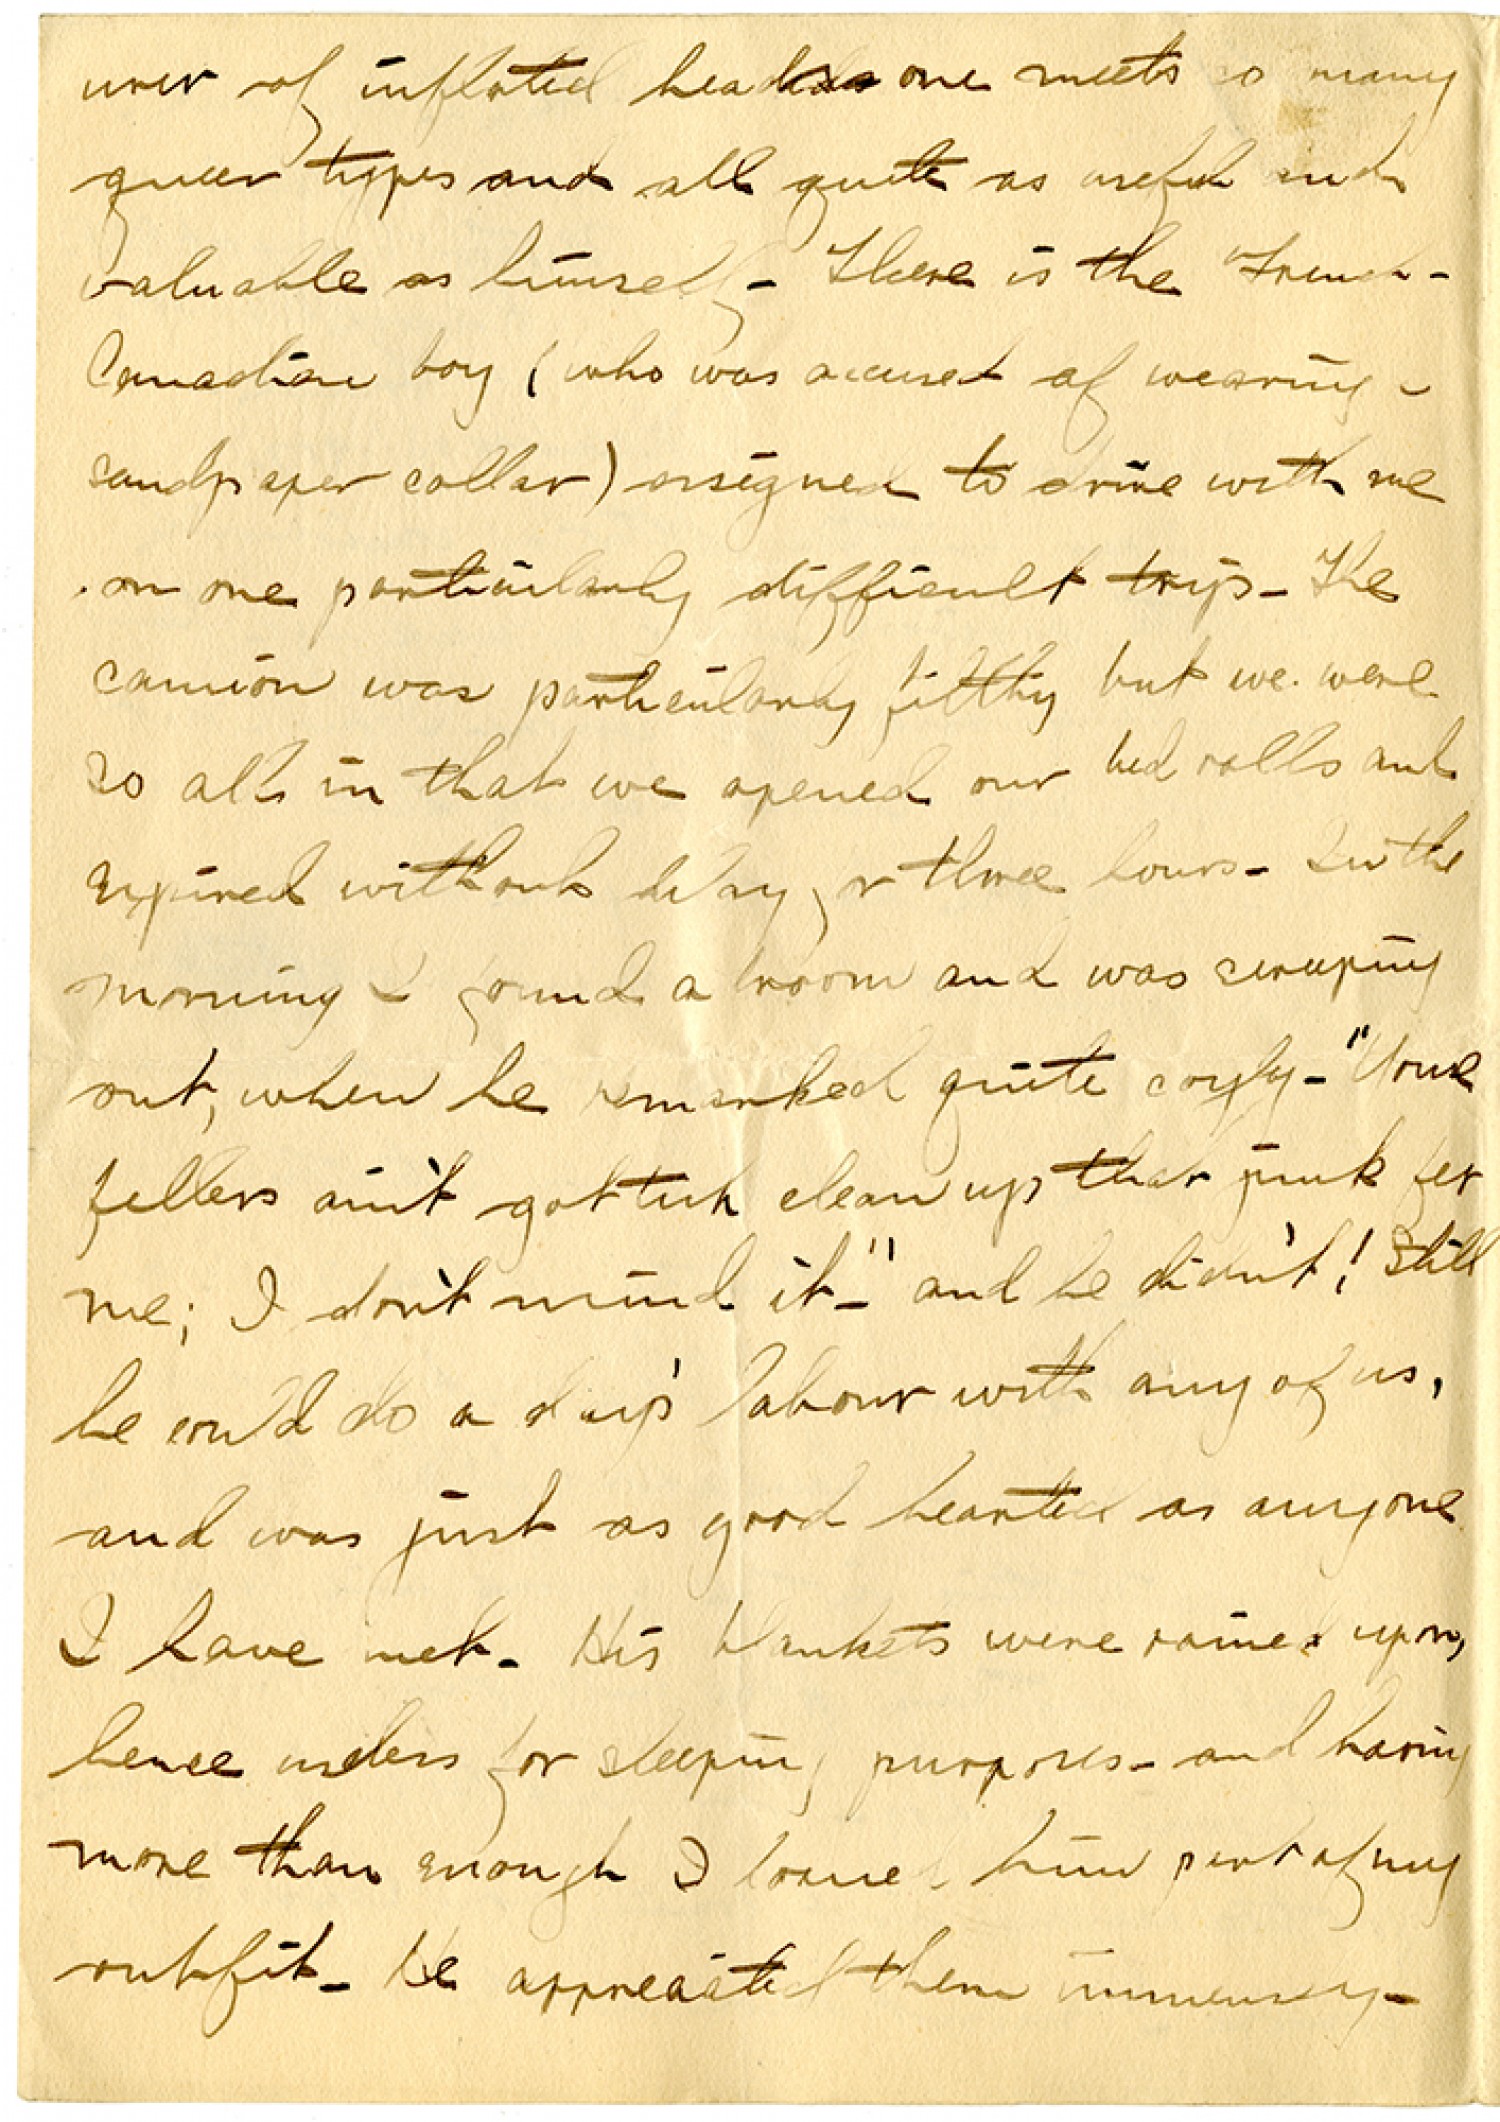 urer of inflated heads one meets so many
queer types and all quite as useful and
valuable as himself - There is the French-
Canadian boy (who was accused of wearing a
sandpaper collar) assigned to drive with me
on one particularly difficult trip - The
camion was particularly filthy but we were
so all in that we opened our bed rolls and
expired without delay, for three hours - In the
morning I found a broom and was sweeping
out, when he remarked quite coyly - "Youse
fellers ain't got tuh clean up that junk fer
me; I don't mind it -" and he didn't! Still
he could do a day's labour with any of us,
and was just as good hearted as anyone
I have met - His blankets were rained upon,
hence useless for sleeping purposes - and having
more than enough I loaned him part of my
outfit - He appreciated them immensely -